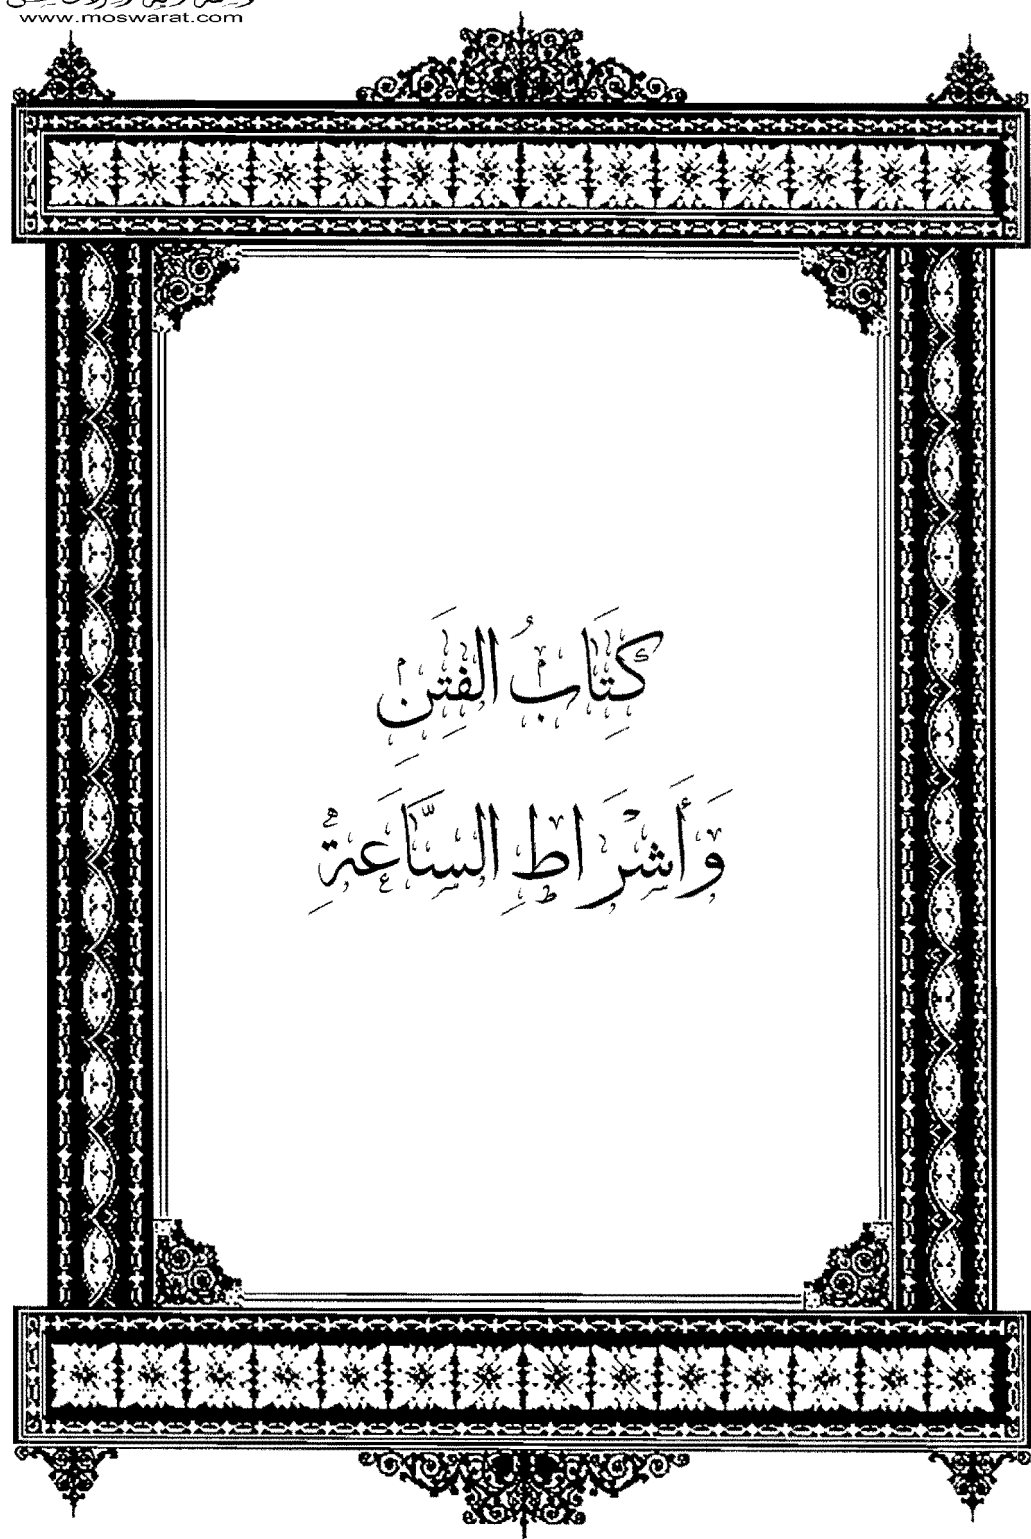 www.moswarat.com
كِتَابُ الفِتَنِ
وَأَشْرَاطِ السَّاعَةِ